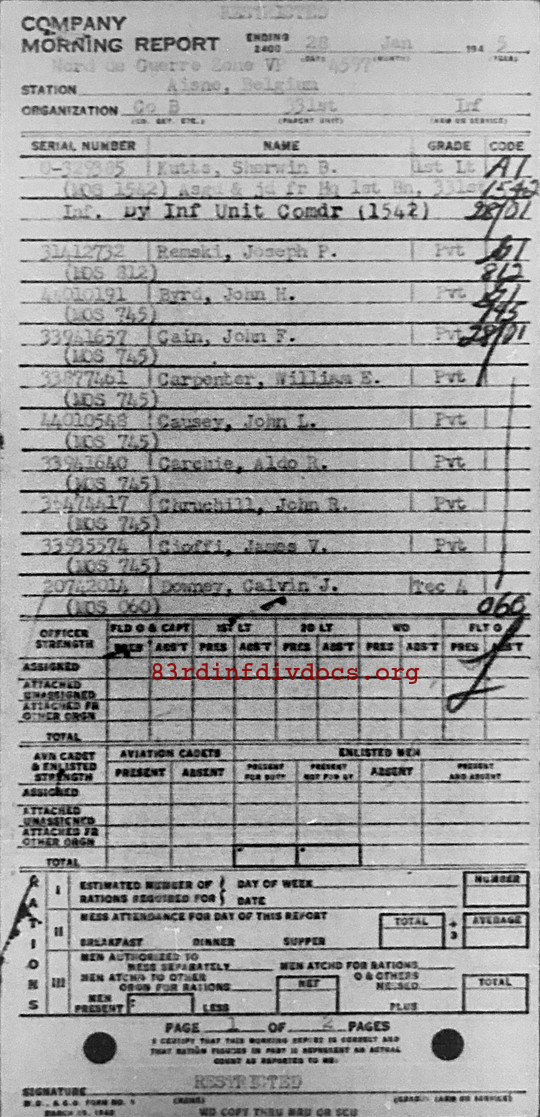 RESTRICTED
COMPANY
MORNING REPORT ENDING 2400 28 Jan 194 5
(DATE) (MONTH) (YEAR)
Nord de Guerre Zone VP 4597
STATION Aisne, Belgium
ORGANIZATION Co B 331st Inf
(CO. DET. ETC.) (PARENT UNIT) (ARM OR SERVICE)
SERIAL NUMBER NAME GRADE CODE
O-329385 Kutts, Sherwin B. 1st Lt A1
(MOS 1542) Asgd & jd fr Hq 1st Bn, 331st 1542
Inf. By Inf Unit Comdr (1542) 28/01
31412732 Remski, Joseph P. Pvt
(MOS 812) 812
44010191 Byrd, John H. Pvt
(MOS 745) 745
33941657 Cain, John F. Pvt 28/01
(MOS 745)
33877461 Carpenter, William E. Pvt
(MOS 745)
44010548 Causey, John L. Pvt
(MOS 745)
33941640 Carchie, Aldo R. Pvt
(MOS 745)
35474417 Chruchill, John R. Pvt
(MOS 745)
33935574 Cioffi, James V. Pvt
(MOS 745)
20742014 Downey, Calvin J. Tec 4
(MOS 060) 060
OFFICER STRENGTH FLD O & CAPT 1ST LT 2D LT WO FLT O
PRES ABS'T PRES ABS'T PRES ABS'T PRES ABS'T PRES ABS'T
ASSIGNED
83rdinfdivdocs.org
ATTACHED UNASSIGNED
ATTACHED FR OTHER ORGN
TOTAL
AVN CADET & ENLISTED STRENGTH AVIATION CADETS ENLISTED MEN
PRESENT ABSENT PRESENT FOR DUTY PRESENT NOT FOR DY ABSENT PRESENT AND ABSENT
ASSIGNED
ATTACHED UNASSIGNED
ATTACHED FR OTHER ORGN
TOTAL
RATIONS
I ESTIMATED NUMBER OF RATIONS REQUIRED FOR DAY OF WEEK DATE NUMBER
II MESS ATTENDANCE FOR DAY OF THIS REPORT TOTAL ÷ 3 AVERAGE
BREAKFAST DINNER SUPPER
III MEN AUTHORIZED TO MESS SEPARATELY MEN ATCHD FOR RATIONS
MEN ATCHD TO OTHER ORGN FOR RATIONS NET O & OTHERS MESSED TOTAL
MEN PRESENT LESS PLUS
PAGE 1 OF 2 PAGES
I CERTIFY THAT THIS MORNING REPORT IS CORRECT AND
THAT RATION FIGURES IN PART III REPRESENT AN ACTUAL
COUNT AS REPORTED TO ME.
RESTRICTED
SIGNATURE
W.D., A.G.O. FORM NO. 1 (NAME) (GRADE) (ARM OR SERVICE)
MARCH 1943
WD COPY THRU MRU OR SCU